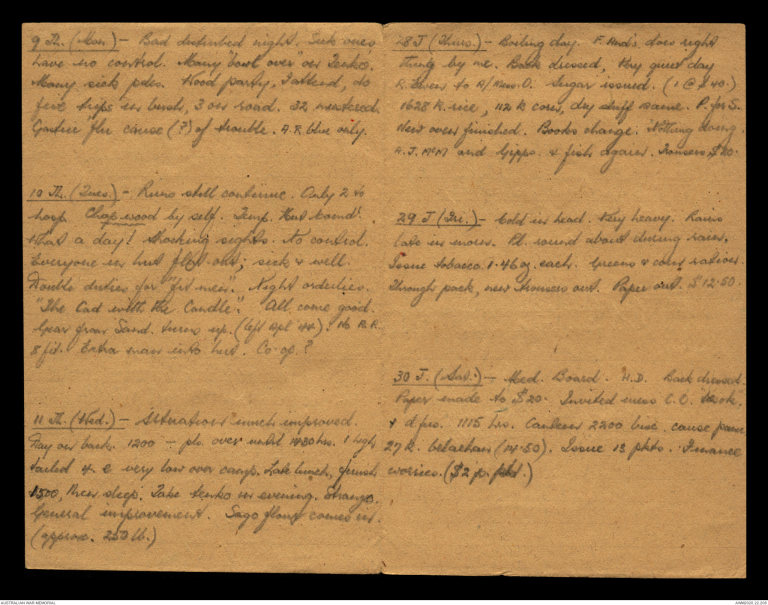 9 Th. (Mon.) - Bad disturbed night. Sick ones
have no control. Many "bowl" over on Tenko.
Many sick pdes. Wood party, I attend, do
five trips in bush, 3 on road. 32 mustered
Gastric flu cause (?) of trouble. A.R. blue only.
10 Th. (Tues.) - Runs still continue. Only 2 to
hosp. Chap wood by self. Temp. Hut comd.
What a day! Shocking sights. No control.
Everyone in hut flat out; sick & well.
Double duties for "fit men". Night orderlies.
"The Cad with the Candle". All come good.
Gear from Sand. turns up. (left Apl 44). 16 R.R.
8 fit. Extra man into hut. Co-op.?
11 Th. (Wed.) - "Situation" much improved.
Day on bach. 1200 - pls. over until 1430 hrs. 1 high
tailed 4. e very low over camp. Late lunch, finish
1500, then sleep. Take tenko in evening. Strange.
General improvement. Sago flour comes in.
(approx. 250 lb.)
28 J (Thurs.) - Boiling day. F. does right
thing by me. Back dressed, Very quiet day
R. to A/Mess. O. Sugar issued. (1 @ $40.)
1628 K. rice, 112 K corn, dry stuff same. P. for S.
New oven finished. Books change. Nothing doing.
A.J. McM and Gipps. & fish again. Trousers $20.
29 J (Fri.) - Cold in head. Very heavy. Rains
late in morn. Pl. round about during rain.
Issue tobacco 1.46 oz. each. Greens & corn ration.
Through pack, new trousers out. Paper out. $12.50.
30 J. (Sat.) - Med. Board. H.D. Back dressed.
Paper made to $20. Invited mess C.O.
& d pro. 1115 hrs. Canteen 2200 bisc. cause pain
27 K. belachan (14.50). Issue 13 pkts. Finance
worries. ($2 p. pkt.)
AUSTRALIAN WAR MEMORIAL